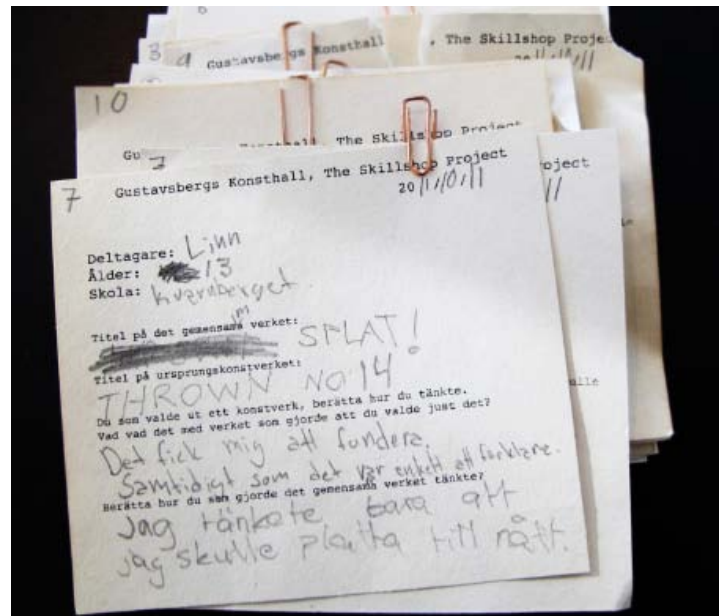 6
9
Gustavsbergs Konsthall
, The Skillshop Projec
2011/10/11
10
Gu
, The Skillshop Project
7
7
Gustavsbergs Konsthall, The Skillshop Project
oject
2011/10/11
11
Deltagare: Linn
Ålder: 13
Skola: Kvarnberget.
Titel på det gemensamm verket:
SPLAT!
Titel på ursprungskonstverket:
THROWN NO 14
Du som valde ut ett konstverk, berätta hur du tänkte.
Vad vad det med verket som gjorde att du valde just det?
Det fick mig att fundera.
Samtidigt som det var enkelt att förklare.
Berätta hur du som gjorde det gemensamma verket tänkte?
Jag tänkte bara att
jag skulle platta till nått.